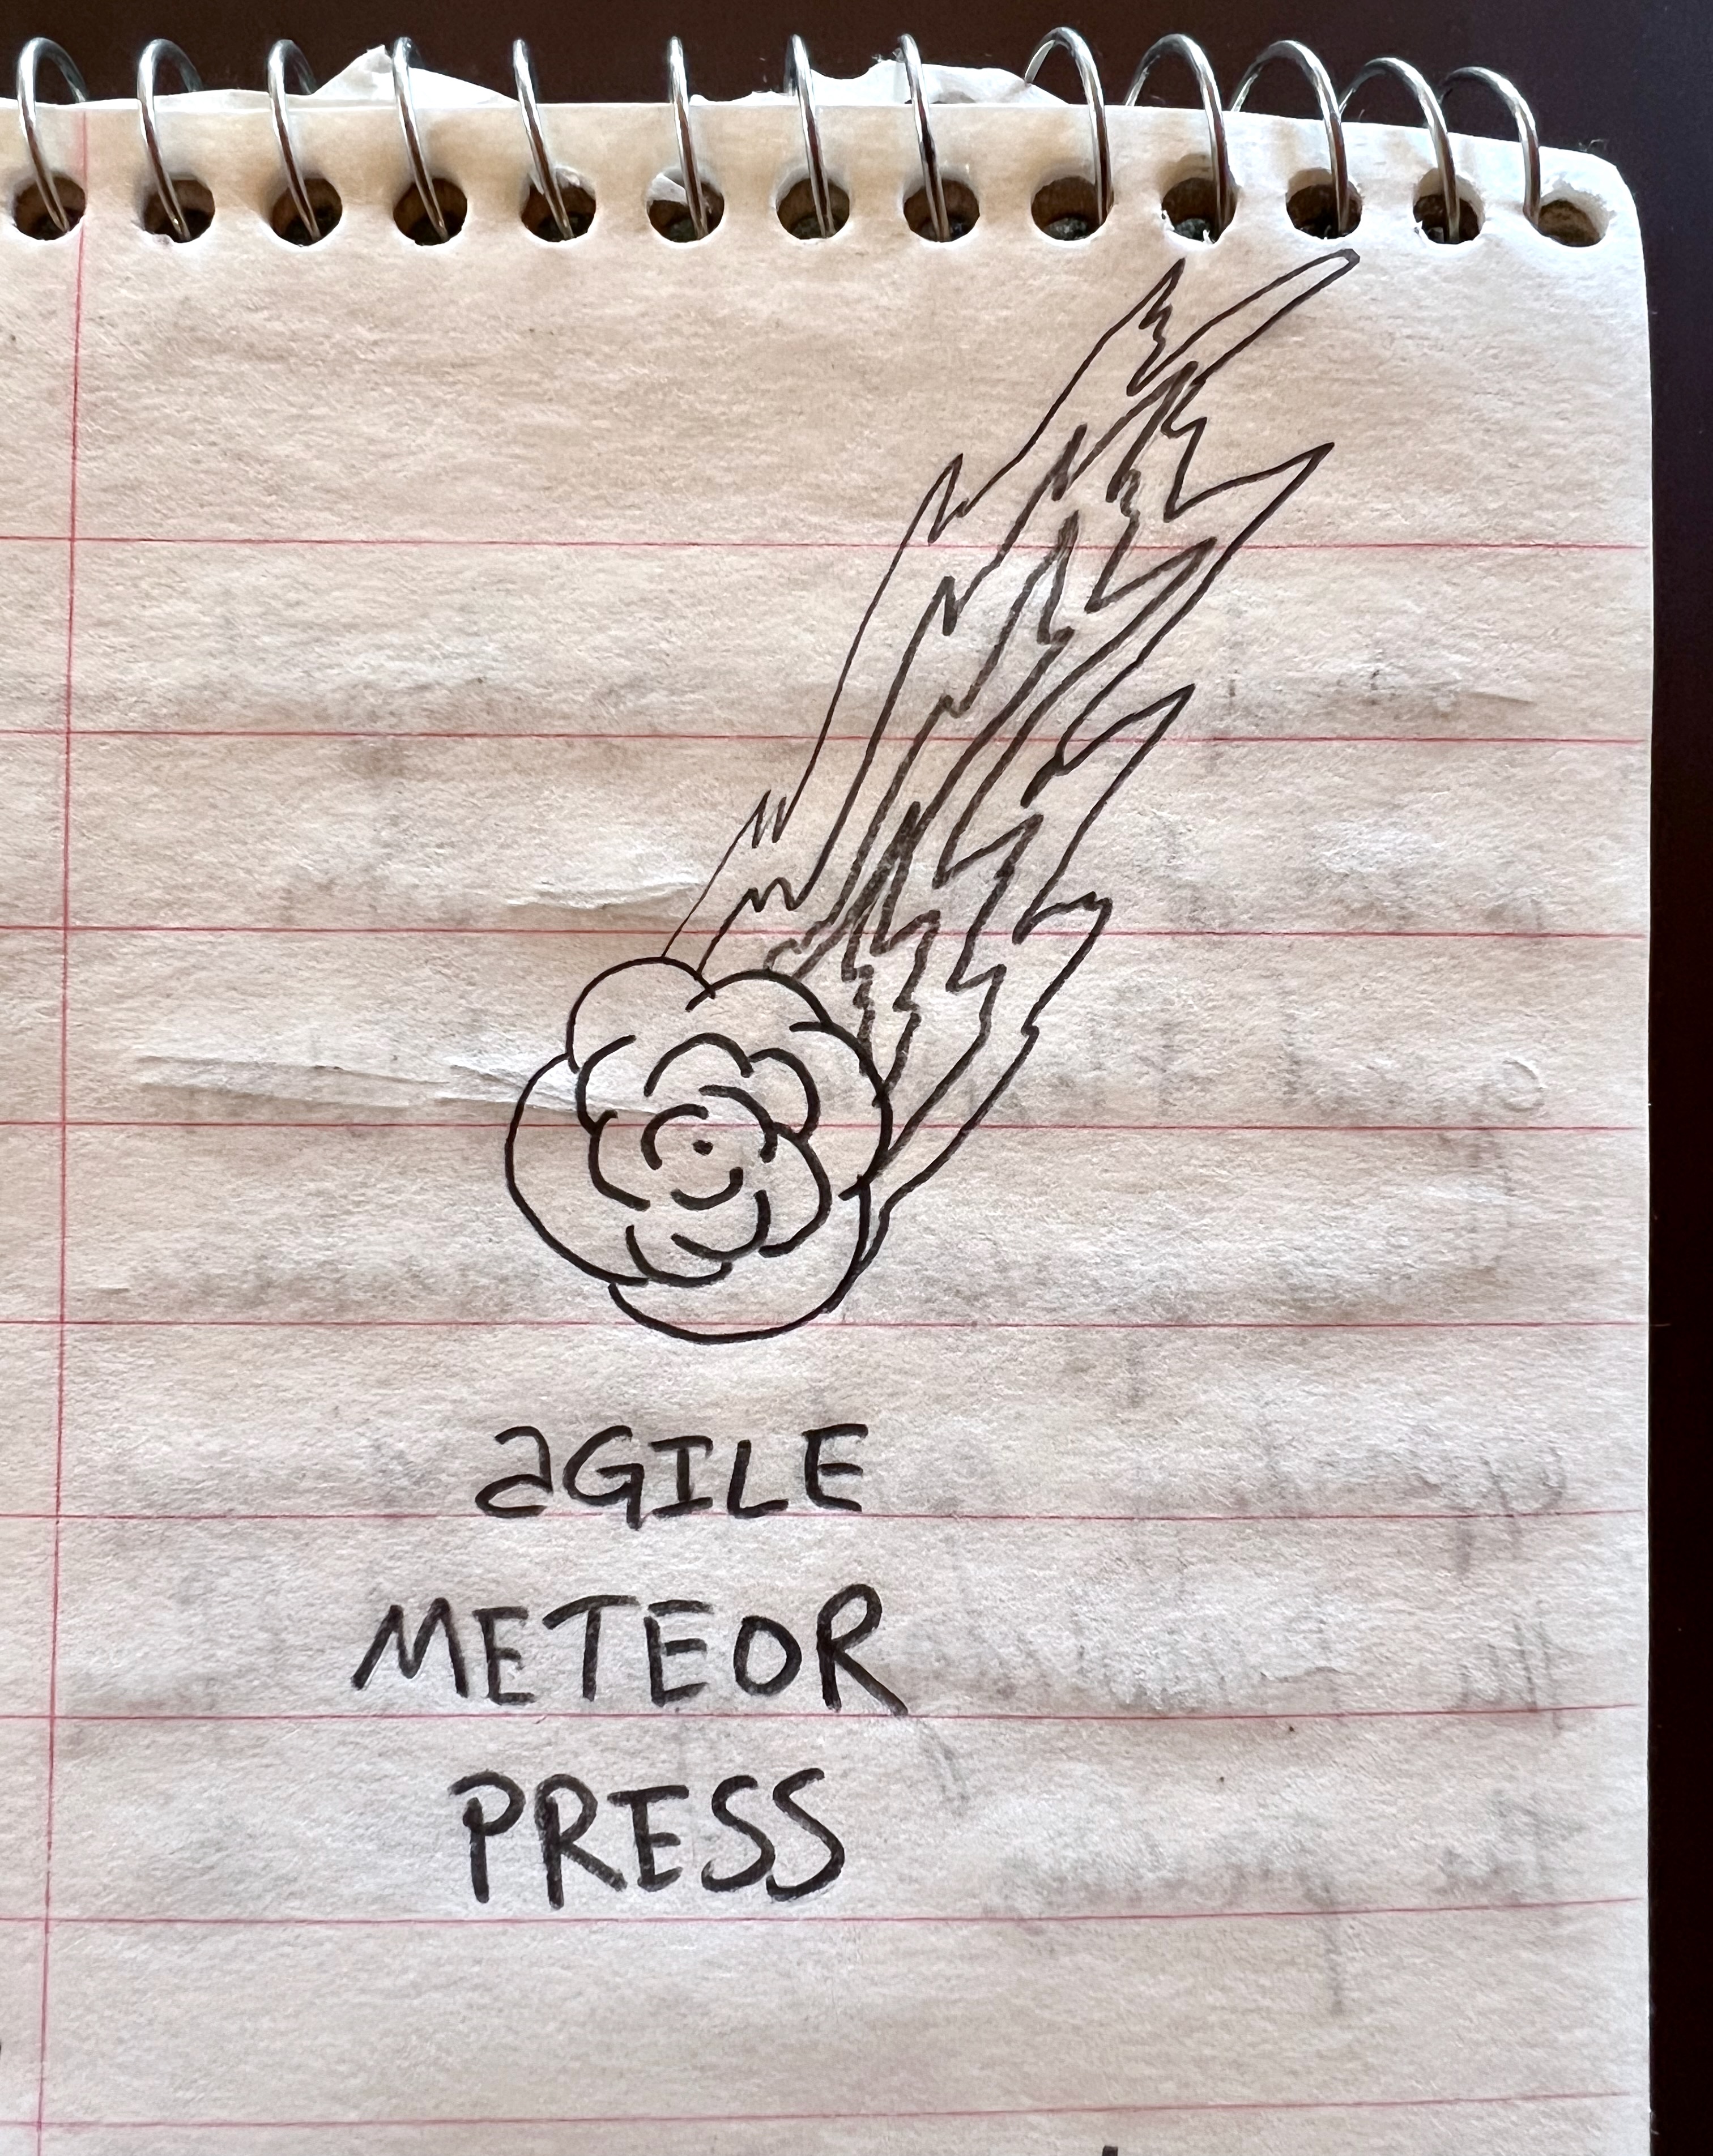 aGILE
METEOR
PRESS